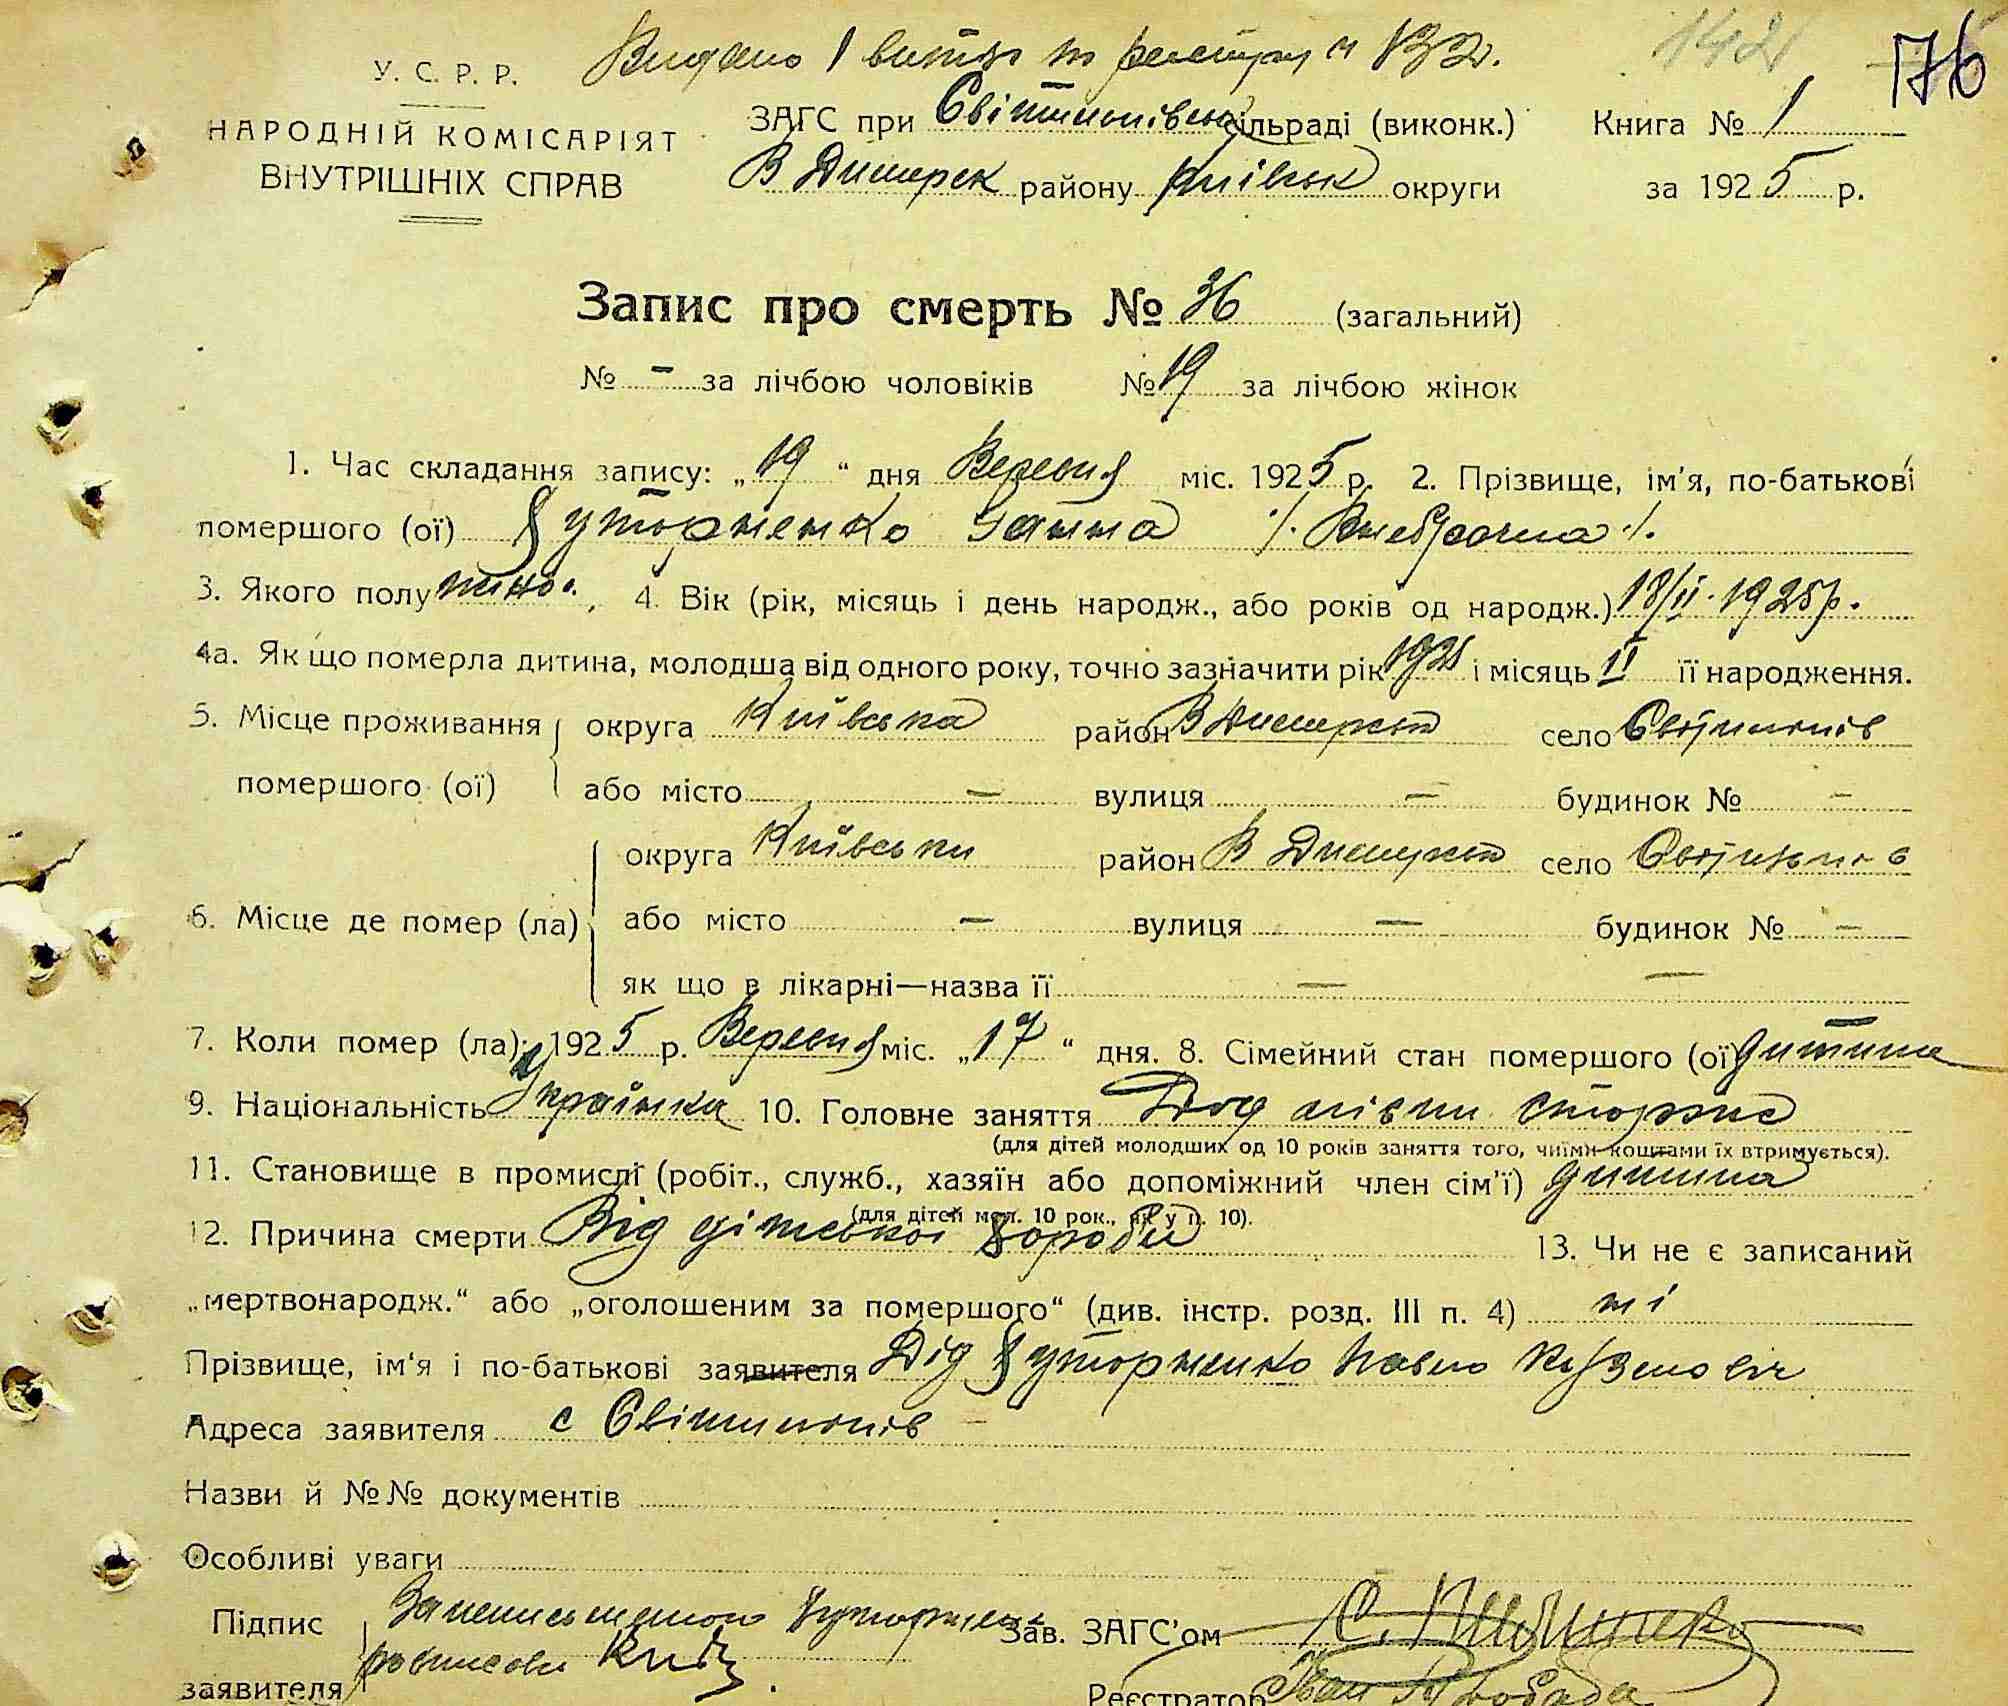 Видано 1 витяг по реєстру № 132. 142 176
У. С. Р. Р.
НАРОДНІЙ КОМІСАРІЯТ
ВНУТРІШНІХ СПРАВ
ЗАГС при сільраді (виконк.) Книга № 1
В Димерськ району Київськ округи за 1925 р.
Запис про смерть № 36 (загальний)
№ – за лічбою чоловіків № 19 за лічбою жінок
1. Час складання запису: „19“ дня Вересня міс. 1925 р. 2. Прізвище, ім'я, по-батькові
помершого (ої) Ганна
3. Якого полу жіно., 4. Вік (рік, місяць і день народж., або років од народж.) 18/II. 1925 р.
4а. Як що померла дитина, молодша від одного року, точно зазначити рік 1925 і місяць II її народження.
5. Місце проживання округа Київська район В Димерськ село
помершого (ої) або місто – вулиця – будинок № –
округа Київська район В Димерськ село
6. Місце де помер (ла) або місто – вулиця – будинок № –
як що в лікарні—назва її – –
7. Коли помер (ла): 1925 р. Вересня міс. „17“ дня. 8. Сімейний стан помершого (ої) дитина
9. Національність Українка 10. Головне заняття
(для дітей молодших од 10 років заняття того, чиїми коштами їх втримується).
11. Становище в промислі (робіт., служб., хазяїн або допоміжний член сім'ї) дитина
(для дітей мол. 10 рок., як у п. 10).
12. Причина смерти Від дітської хороби 13. Чи не є записаний
„мертвонародж.“ або „оголошеним за помершого“ (див. інстр. розд. III п. 4) ні
Прізвище, ім'я і по-батькові заявителя Дід Павло Кузмович
Адреса заявителя с
Назви й №№ документів
Особливі уваги
Підпис Зав. ЗАГС'ом
заявителя Реєстратор Іван